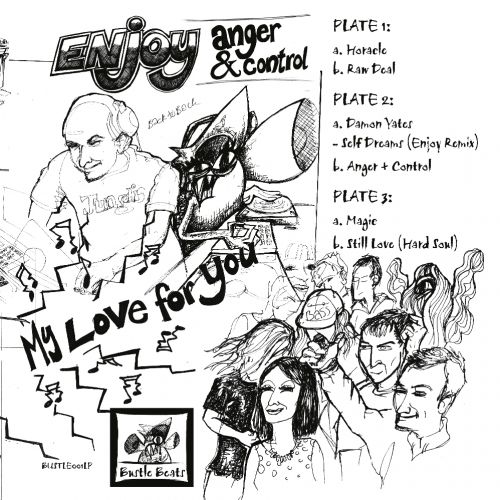 ENJOY
anger
& control
PLATE 1:
a. Horacle
b. Raw Deal
PLATE 2:
a. Damon Yates
- Self Dreams (Enjoy Remix)
b. Anger + Control
PLATE 3:
a. Magic
b. Still Love (Hard Soul)
Back to Back
My Love for you
BUSTLE001LP
Bustle Beats